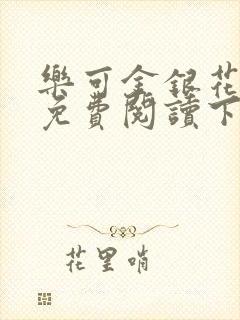 樂可金銀花
免費閱讀下
花里哨